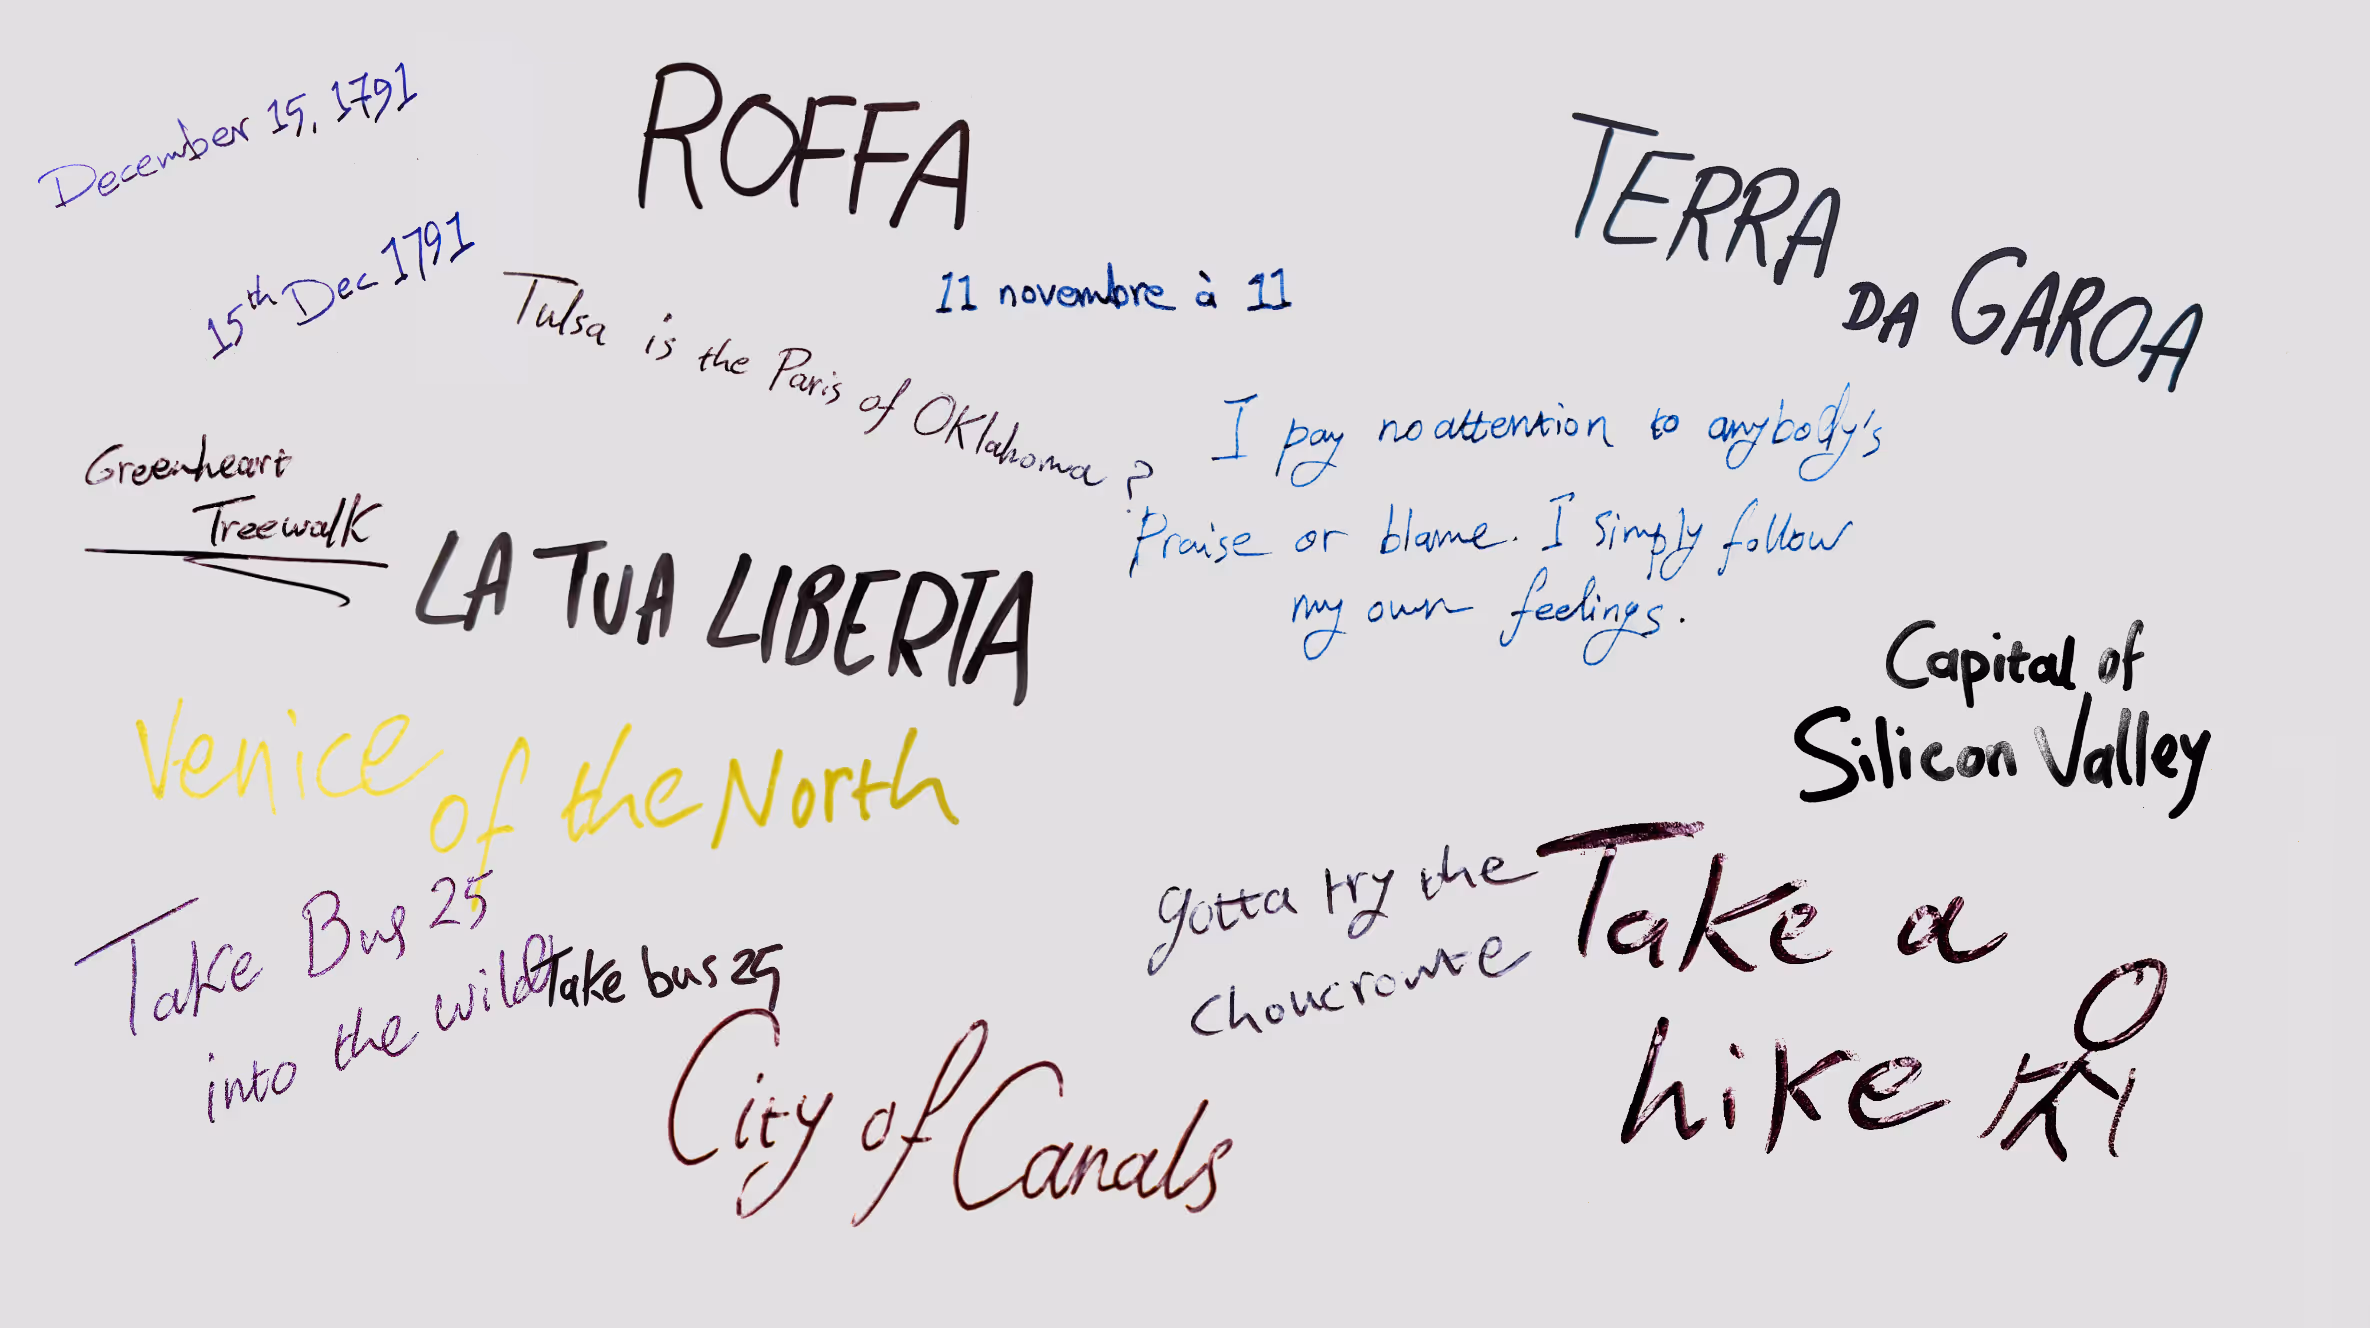 December 15, 1791
ROFFA
TERRA DA GAROA
15th Dec 1791
11 novembre à 11
Tulsa is the Paris of Oklahoma?
I pay no attention to anybody's
Praise or blame. I simply follow
my own feelings.
Greenheart
Treewalk
LA TUA LIBERTA
Capital of
Silicon Valley
Venice of the North
Take Bus 25
into the wild
Take bus 25
gotta try the
choucroute
Take a
hike
City of Canals